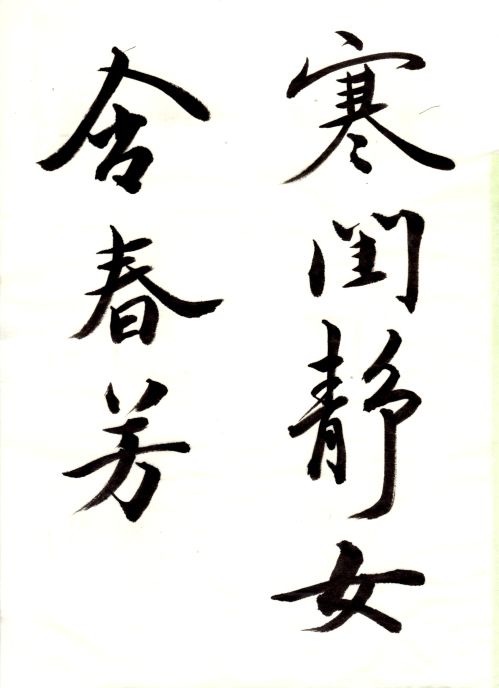 寒闺静女
舍春芳